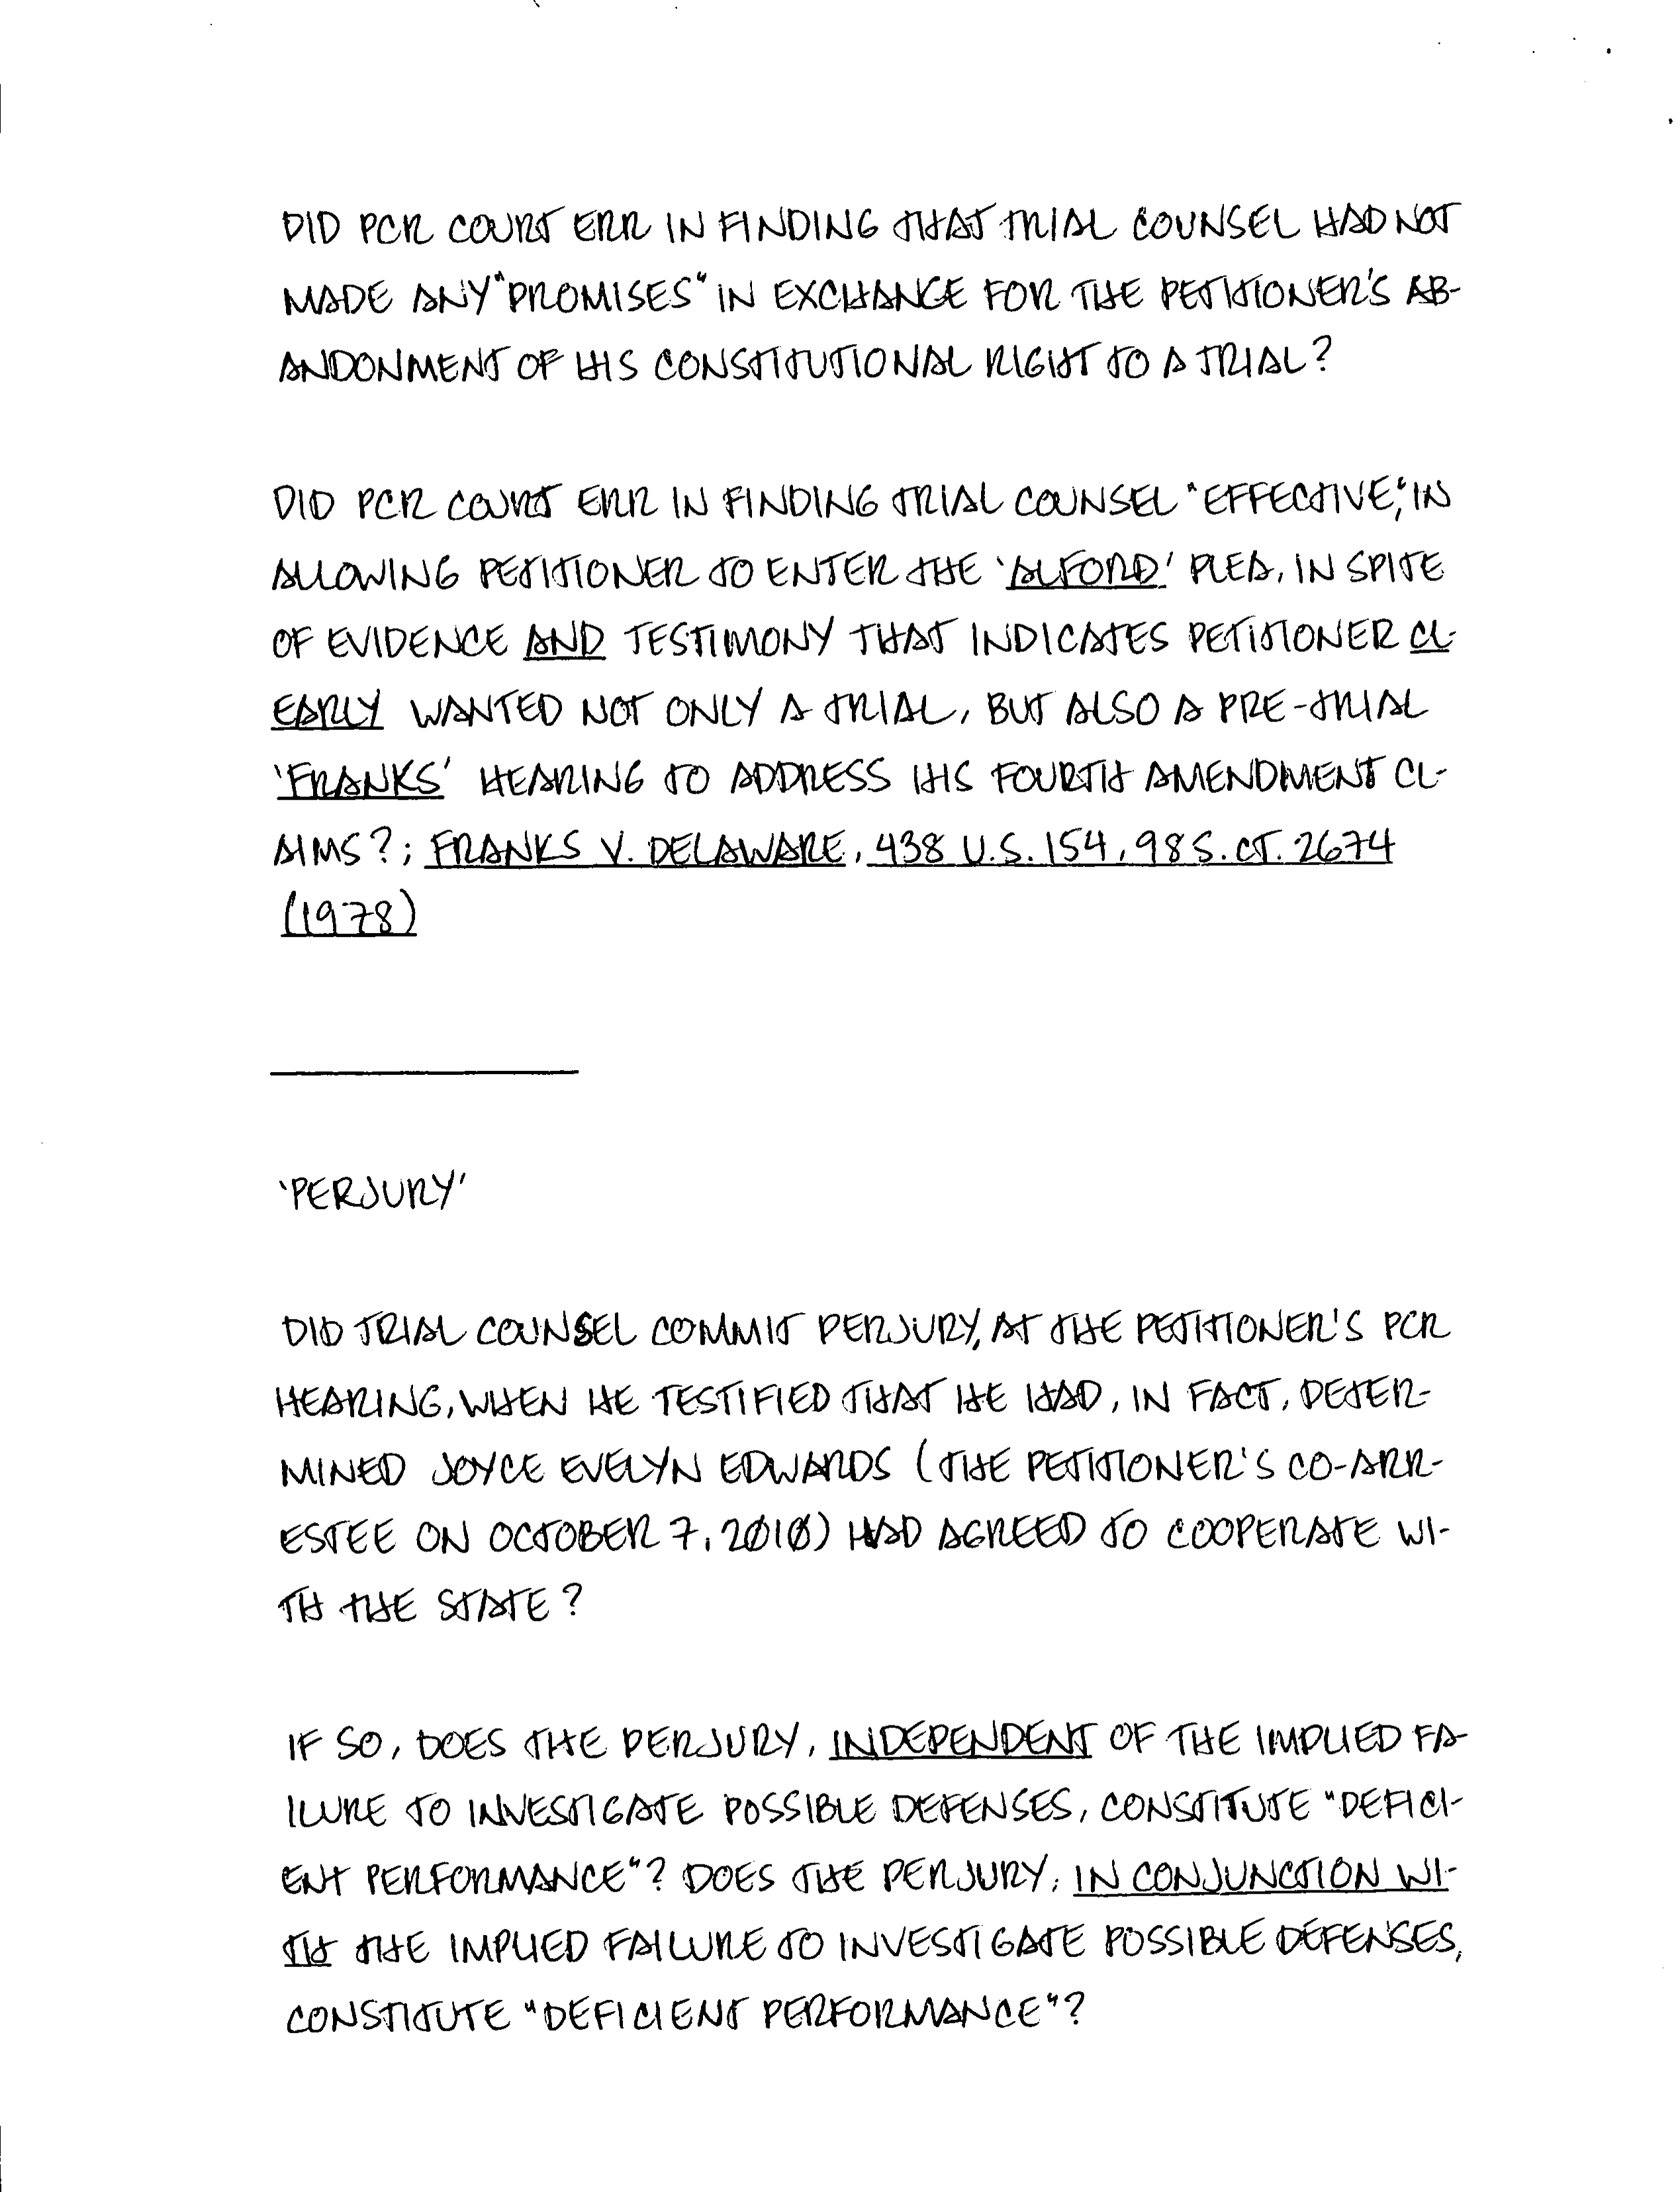 DID PCR COURT ERR IN FINDING THAT TRIAL COUNSEL HAD NOT
MADE ANY "PROMISES" IN EXCHANGE FOR THE PETITIONER'S AB-
ANDONMENT OF HIS CONSTITUTIONAL RIGHT TO A TRIAL?
DID PCR COURT ERR IN FINDING TRIAL COUNSEL "EFFECTIVE," IN
ALLOWING PETITIONER TO ENTER THE 'ALFORD' PLEA, IN SPITE
OF EVIDENCE AND TESTIMONY THAT INDICATES PETITIONER CL-
EARLY WANTED NOT ONLY A TRIAL, BUT ALSO A PRE-TRIAL
'FRANKS' HEARING TO ADDRESS HIS FOURTH AMENDMENT CL-
AIMS?; FRANKS V. DELAWARE, 438 U.S. 154, 98 S. CT. 2674
(1978)
'PERJURY'
DID TRIAL COUNSEL COMMIT PERJURY, AT THE PETITIONER'S PCR
HEARING, WHEN HE TESTIFIED THAT HE HAD, IN FACT, DETER-
MINED JOYCE EVELYN EDWARDS (THE PETITIONER'S CO-ARR-
ESTEE ON OCTOBER 7, 2010) HAD AGREED TO COOPERATE WI-
TH THE STATE?
IF SO, DOES THE PERJURY, INDEPENDENT OF THE IMPLIED FA-
ILURE TO INVESTIGATE POSSIBLE DEFENSES, CONSTITUTE "DEFICI-
ENT PERFORMANCE"? DOES THE PERJURY, IN CONJUNCTION WI-
TH THE IMPLIED FAILURE TO INVESTIGATE POSSIBLE DEFENSES,
CONSTITUTE "DEFICIENT PERFORMANCE"?